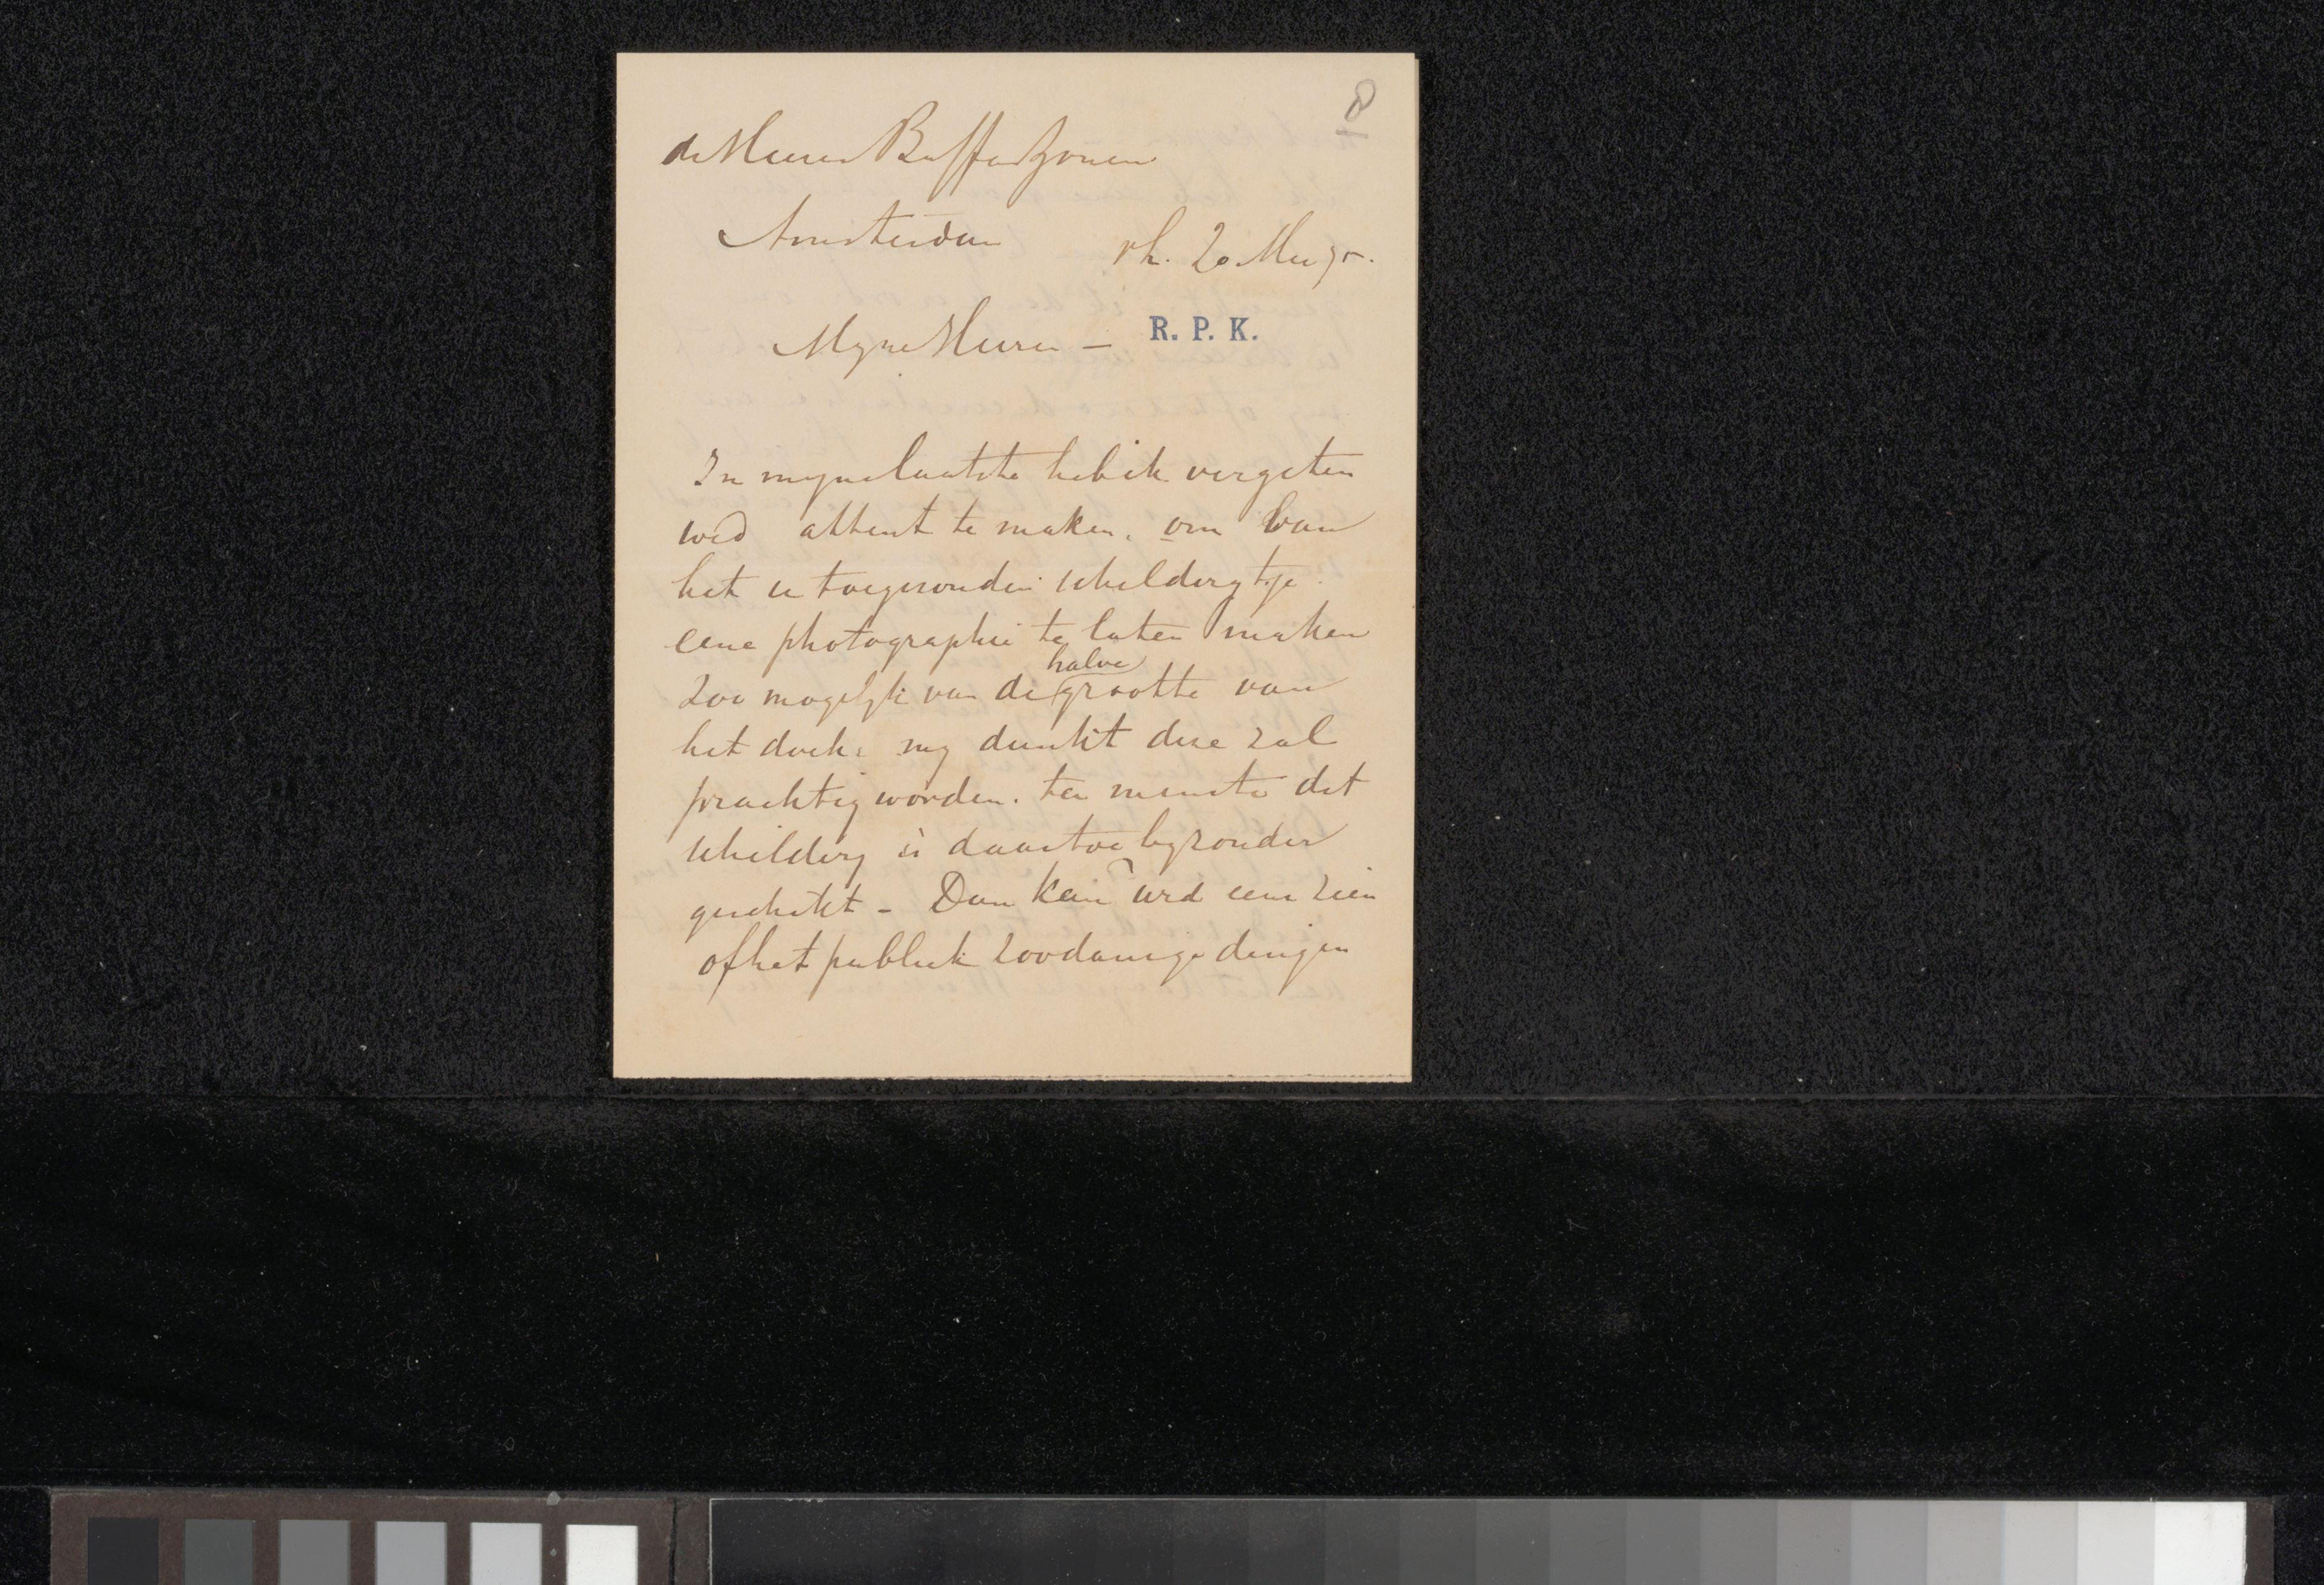 de Heeren Buffa & Zonen
Amsterdam
20 Mei 75.
Myne Heeren –
R. P. K.
In myne laatste heb ik vergeten
uEd attent te maken, om van
het u toegezonden schilderytje
eene photographie te laten maken
halve
zoo mogelyk van de grootte van
het doek: my dunkt deze zal
prachtig worden. ten minste dit
schildery is daartoe byzonder
geschikt – Dan kan uEd eens zien
of het publiek zoodanige dingen